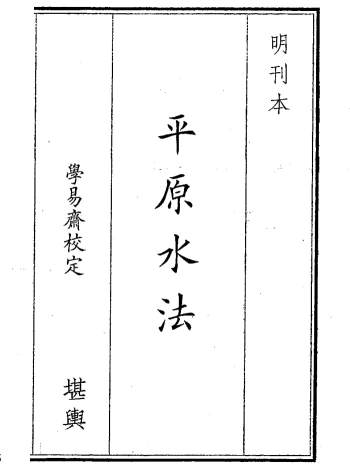 明刊本
平原水法
學易齋校定
堪輿